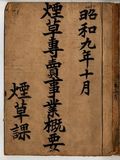 昭和九年十月
煙草專賣事業概要
煙草課